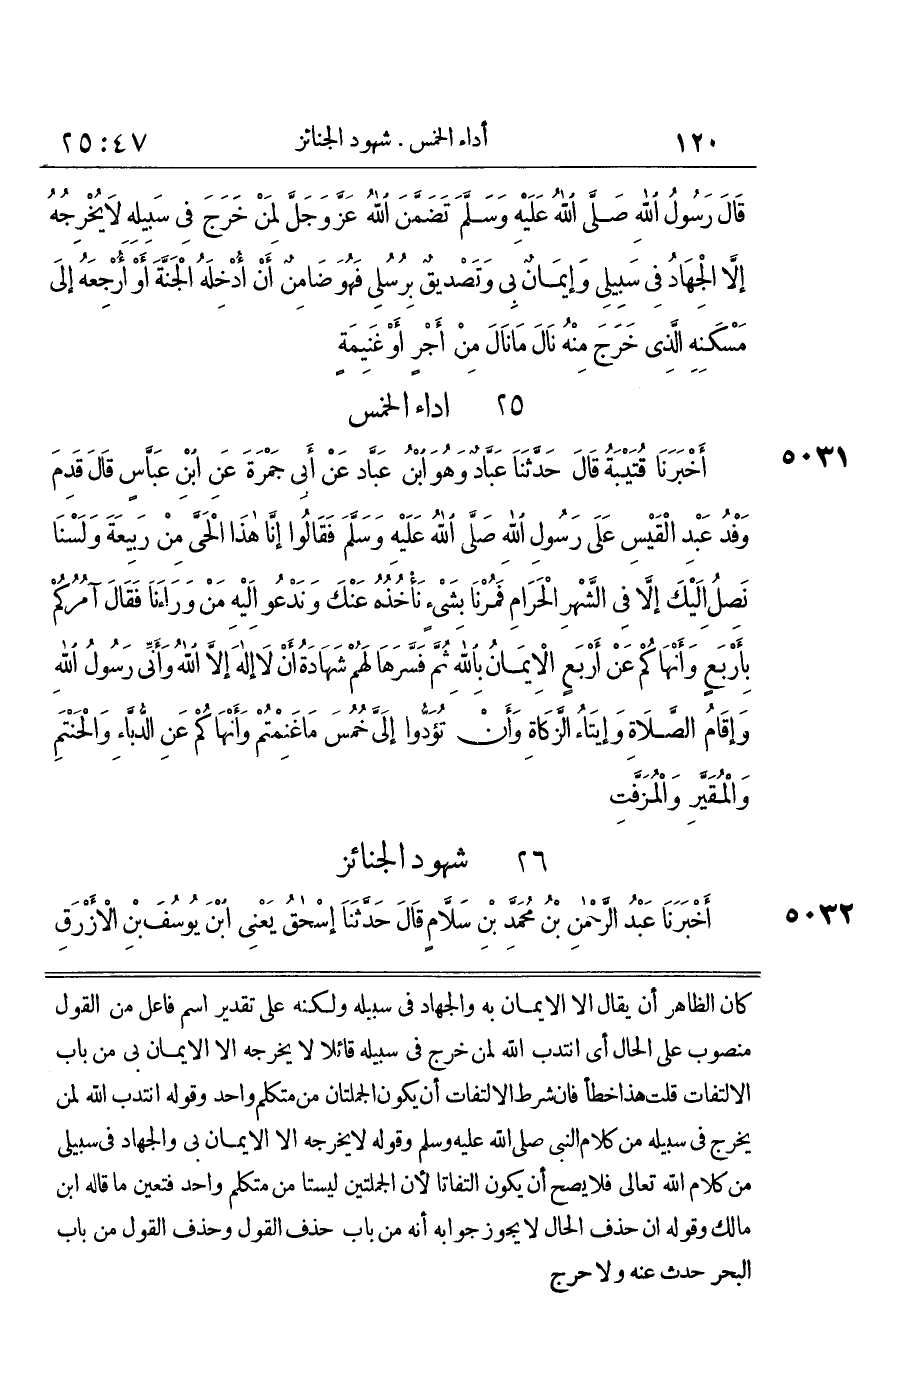 ١٢٠ أداء الخمس . شهود الجنائز ٤٧ : ٢٥
قَالَ رَسُولُ اللهِ صَلَّى اللهُ عَلَيْهِ وَسَلَّمَ تَضَمَّنَ اللهُ عَزَّ وَجَلَّ لِمَنْ خَرَجَ فِى سَبِيلِهِ لَا يُخْرِجُهُ
إِلَّا الْجِهَادُ فِى سَبِيلِى وَإِيمَانٌ بِى وَتَصْدِيقٌ بِرُسُلِى فَهُوَ ضَامِنٌ أَنْ أُدْخِلَهُ الْجَنَّةَ أَوْ أُرْجِعَهُ إِلَى
مَسْكَنِهِ الَّذِى خَرَجَ مِنْهُ نَالَ مَا نَالَ مِنْ أَجْرٍ أَوْ غَنِيمَةٍ
٢٥ اداء الخمس
٥٠٣١ أَخْبَرَنَا قُتَيْبَةُ قَالَ حَدَّثَنَا عَبَّادٌ وَهُوَ ابْنُ عَبَّادٍ عَنْ أَبِى جَمْرَةَ عَنِ ابْنِ عَبَّاسٍ قَالَ قَدِمَ
وَفْدُ عَبْدِ الْقَيْسِ عَلَى رَسُولِ اللهِ صَلَّى اللهُ عَلَيْهِ وَسَلَّمَ فَقَالُوا إِنَّا هٰذَا الْحَىَّ مِنْ رَبِيعَةَ وَلَسْنَا
نَصِلُ إِلَيْكَ إِلَّا فِى الشَّهْرِ الْحَرَامِ فَمُرْنَا بِشَىْءٍ نَأْخُذُهُ عَنْكَ وَنَدْعُو إِلَيْهِ مَنْ وَرَاءَنَا فَقَالَ آمُرُكُمْ
بِأَرْبَعٍ وَأَنْهَاكُمْ عَنْ أَرْبَعٍ الْإِيمَانُ بِاللهِ ثُمَّ فَسَّرَهَا لَهُمْ شَهَادَةُ أَنْ لَا إِلٰهَ إِلَّا اللهُ وَأَنِّى رَسُولُ اللهِ
وَإِقَامُ الصَّلَاةِ وَإِيتَاءُ الزَّكَاةِ وَأَنْ تُؤَدُّوا إِلَىَّ خُمُسَ مَا غَنِمْتُمْ وَأَنْهَاكُمْ عَنِ الدُّبَّاءِ وَالْحَنْتَمِ
وَالْمُقَيَّرِ وَالْمُزَفَّتِ
٢٦ شهود الجنائز
٥٠٣٢ أَخْبَرَنَا عَبْدُ الرَّحْمٰنِ بْنُ مُحَمَّدِ بْنِ سَلَّامٍ قَالَ حَدَّثَنَا إِسْحٰقُ يَعْنِى ابْنَ يُوسُفَ بْنِ الْأَزْرَقِ
كان الظاهر أن يقال الا الايمان به والجهاد فى سبيله ولكنه على تقدير اسم فاعل من القول
منصوب على الحال أى انتدب الله لمن خرج فى سبيله قائلا لا يخرجه الا الايمان بى من باب
الالتفات قلت هذا خطأ فان شرط الالتفات أن يكون الجملتان من متكلم واحد وقوله انتدب الله لمن
يخرج فى سبيله من كلام النبى صلى الله عليه وسلم وقوله لا يخرجه الا الايمان بى والجهاد فى سبيلى
من كلام الله تعالى فلا يصح أن يكون التفاتا لأن الجملتين ليستا من متكلم واحد فتعين ما قاله ابن
مالك وقوله ان حذف الحال لا يجوز جوابه أنه من باب حذف القول وحذف القول من باب
البحر حدث عنه ولا حرج